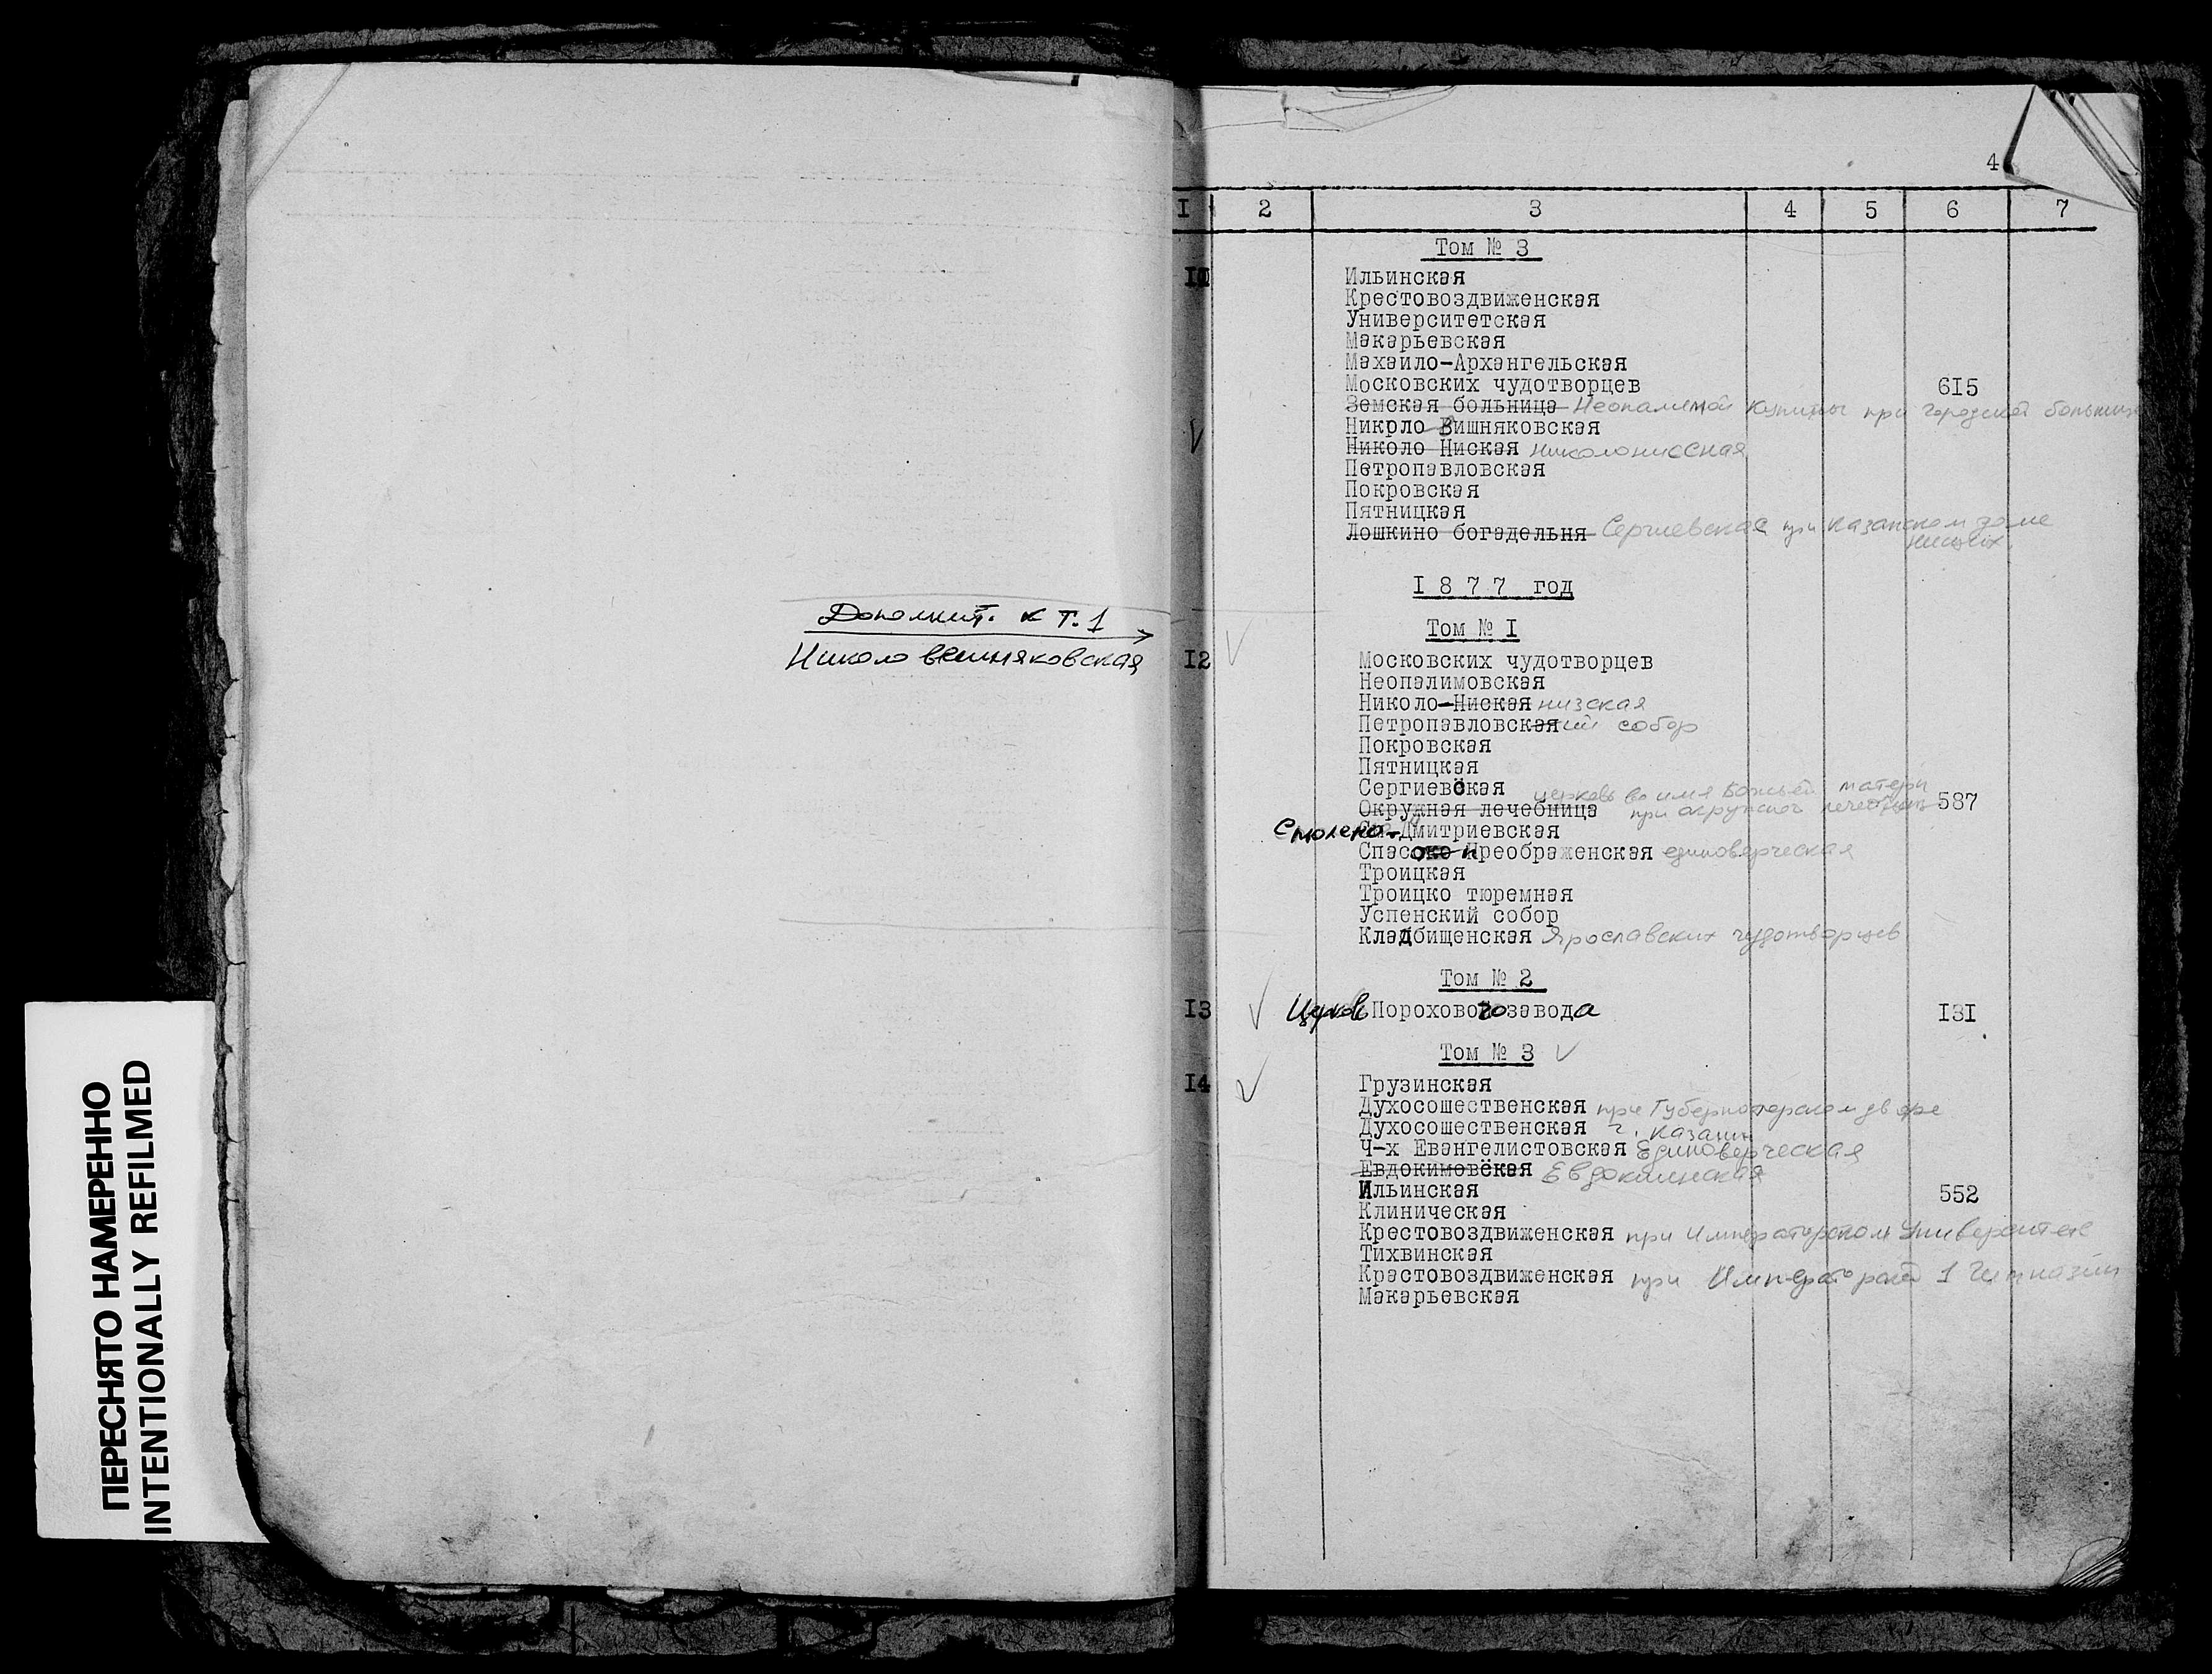 ПЕРЕСНЯТО НАМЕРЕННО
INTENTIONALLY REFILMED
Дополнит. к т. 1
Николо вешняковская
4
I 2 3 4 5 6 7
Том № 3
Ильинская
Крестовоздвиженская
Университетская
Макарьевская
Махаило-Архангельская
Московских чудотворцев 615
Земская больница Неопалимой Купины при городской больнице
Никрло Вишняковская
Николо Ниская Николонисская
Петропавловская
Покровская
Пятницкая
Лошкино богадельня Сергиевская при Казанском доме
нищих.
I 8 7 7 год
Том № I
I2 Московских чудотворцев
Неопалимовская
Николо-Ниская низская
Петропавловская ий собор
Покровская
Пятницкая
Сергиевская церковь во имя Божьей матери
Окружная лечебница при окружной лечебнице 587
Смолено-Дмитриевская
Спасско Преображенская единоверческая
Троицкая
Троицко тюремная
Успенский собор
Кладбищенская Ярославских чудотворцев
Том № 2
I3 Церковь Порохового завода I3I
Том № 3
I4 Грузинская
Духосошественская при Губернаторском дворе
Духосошественская г. Казани
Ч-х Евангелистовская Единоверческая
Евдокимовская Евдокимская
Ильинская 552
Клиническая
Крестовоздвиженская при Императорском Университете
Тихвинская
Крастовоздвиженская при Императорской 1 Гимназии
Макарьевская